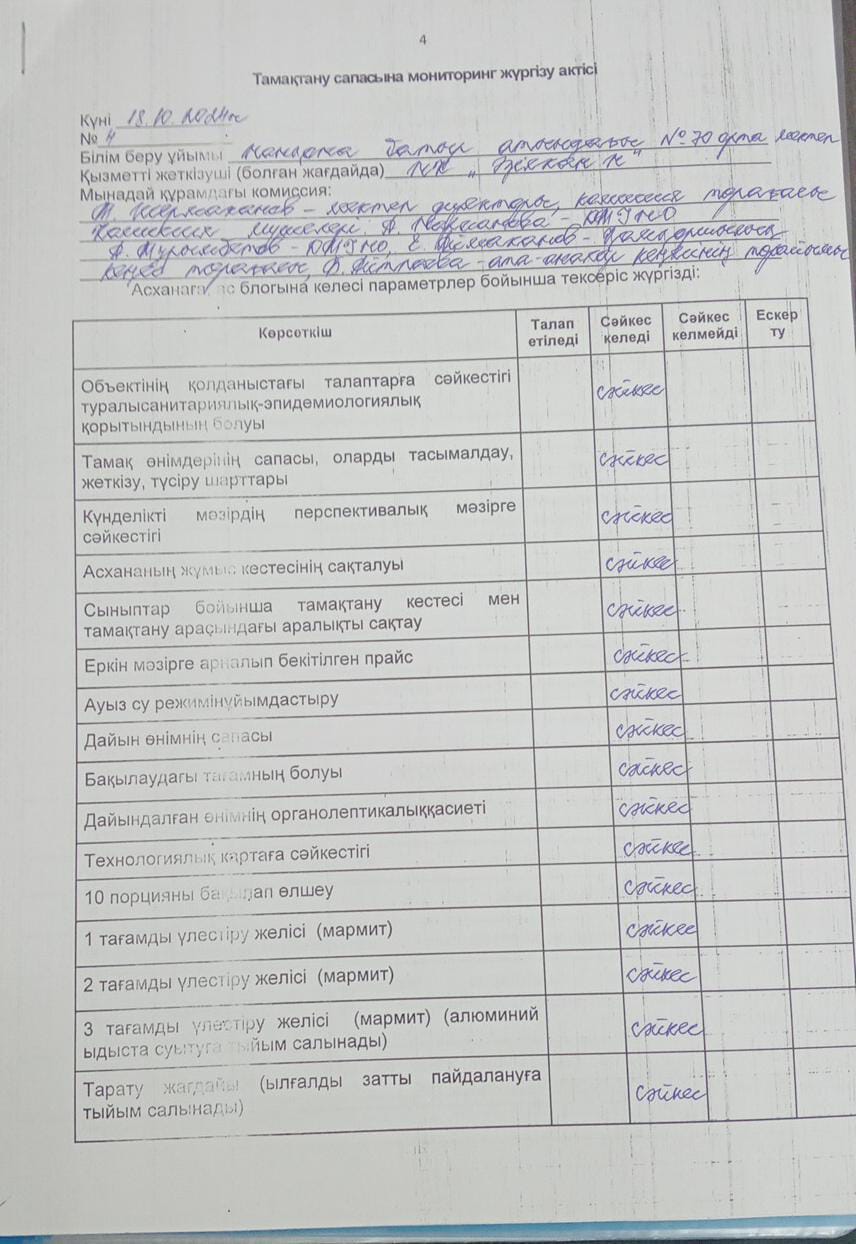 4
Тамақтану сапасына мониторинг жүргізу актісі
Күні 18.10.2024ж
№ 4
Білім беру ұйымы батыр атындағы №70 орта мектеп
Қызметті жеткізуші (болған жағдайда) ЖК
Мынадай құрамдағы комиссия:
– мектеп директоры, комиссия төрағасы
Комиссия мүшелері:
– Қамқоршылық
кеңес төрағасы, – ата-аналар кеңесінің төрайымы
Асханаға/ас блогына келесі параметрлер бойынша тексеріс жүргізді:
Көрсеткіш Талап етіледі Сәйкес келеді Сәйкес келмейді Ескерту
Объектінің қолданыстағы талаптарға сәйкестігі
туралысанитариялық-эпидемиологиялық сәйкес
қорытындының болуы
Тамақ өнімдерінің сапасы, оларды тасымалдау, сәйкес
жеткізу, түсіру шарттары
Күнделікті мәзірдің перспективалық мәзірге сәйкес
сәйкестігі
Асхананың жұмыс кестесінің сақталуы сәйкес
Сыныптар бойынша тамақтану кестесі мен сәйкес
тамақтану арасындағы аралықты сақтау
Еркін мәзірге арналып бекітілген прайс сәйкес
Ауыз су режимінұйымдастыру сәйкес
Дайын өнімнің сапасы сәйкес
Бақылаудағы тағамның болуы сәйкес
Дайындалған өнімнің органолептикалыққасиеті сәйкес
Технологиялық картаға сәйкестігі сәйкес
10 порцияны бақылап өлшеу сәйкес
1 тағамды үлестіру желісі (мармит) сәйкес
2 тағамды үлестіру желісі (мармит) сәйкес
3 тағамды үлестіру желісі (мармит) (алюминий сәйкес
ыдыста суытуға тыйым салынады)
Тарату жағдайы (ылғалды затты пайдалануға сәйкес
тыйым салынады)